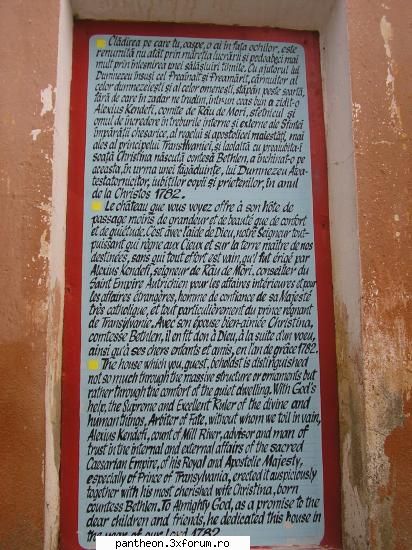 Clădirea pe care tu, oaspe, o ai în fața ochilor, este
renumită nu atât prin măreția lucrării și podoabei mai
mult prin întocmirea unei sălășluiri tihnite. Cu ajutorul lui
Dumnezeu însuși cel Preaînalt și Preamărit, cârmuitor al
celor dumnezeiești și al celor omenești, stăpân peste soartă,
fără de care în zadar ne trudim, într-un ceas bun a zidit-o
Alexius Kendefi, comite de Râu de Mori, sfetnicul și
omul de încredere în treburile interne și externe ale Sfintei
împărății chesarice, al regalei și apostolicei maiestăți, mai
ales al principelui Transilvaniei, și laolaltă cu preaiubita-i
soață Christina născută contesă Bethlen, a închinat-o pe
aceasta, în urma unei făgăduințe, lui Dumnezeu Atot
iubiților copii și prietenilor, în anul
de la Christos 1782.
Le château que vous voyez offre à son hôte de
passage moins de grandeur et de beauté que de confort
et de quiétude. C'est avec l'aide de Dieu, notre Seigneur tout-
puissant qui règne aux Cieux et sur la terre maître de nos
destinées, sans qui tout effort est vain, qu'il fut érigé par
Alexius Kendefi, seigneur de Râu de Mori, conseiller du
Saint Empire Autrichien pour les affaires intérieures et pour
les affaires étrangères, homme de confiance de sa Majesté
très catholique, et tout particulièrement du prince régnant
de Transylvanie. Avec son épouse bien-aimée Christina,
comtesse Bethlen, il en fit don à Dieu, à la suite d'un voeu,
ainsi qu'à ses chers enfants et amis, en l'an de grâce 1782.
The house which you, guest, behold is distinguished
not so much through the massive structure or ornaments but
rather through the comfort of the quiet dwelling. With God's
help, the Supreme and Excellent Ruler of the divine and
human things, Arbiter of Fate, without whom we toil in vain,
Alexius Kendefi, count of Mill River, advisor and man of
trust in the internal and external affairs of the sacred
Caesarian Empire, of his Royal and Apostolic Majesty,
especially of Prince of Transylvania, erected it auspiciously
together with his most cherished wife Christina, born
countess Bethlen. To Almighty God, as a promise to the
dear children and friends, he dedicated this house in
the year of our lord 1782.
pantheon.3xforum.ro